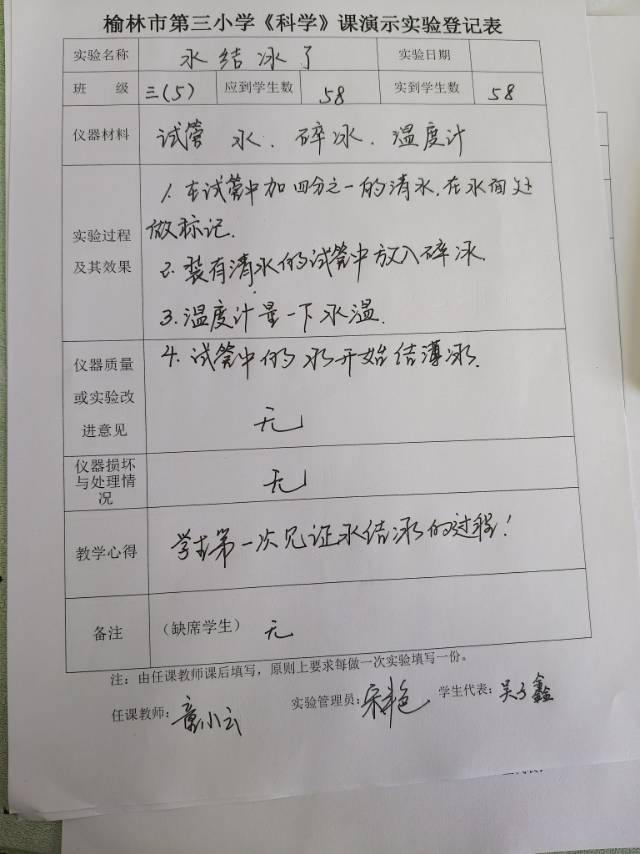 榆林市第三小学《科学》课演示实验登记表
实验名称 水结冰了 实验日期
班 级 三(5) 应到学生数 58 实到学生数 58
仪器材料 试管 水、碎冰、温度计
实验过程
及其效果
1. 在试管中加四分之一的清水,在水面处
做标记.
2. 装有清水的试管中放入碎冰.
3. 温度计量一下水温.
4. 试管中的水开始结薄冰.
仪器质量
或实验改
进意见
无
仪器损坏
与处理情
况
无
教学心得 学生第一次见证水结冰的过程!
备注 (缺席学生) 无
注:由任课教师课后填写,原则上要求每做一次实验填写一份。
任课教师: 小云 实验管理员: 宋艳 学生代表: 吴子鑫